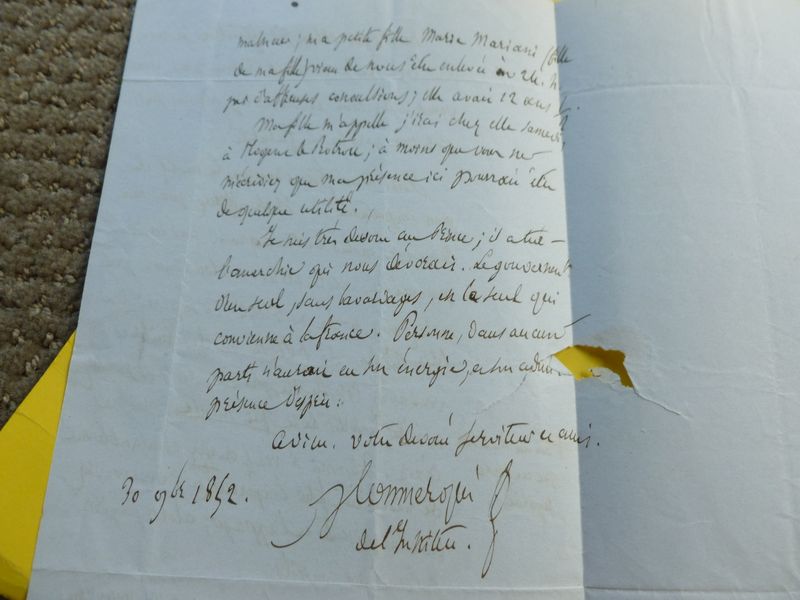 malheur ; ma petite fille Marie Mariani (fille
de ma fille) vient de nous être enlevée en 24. h
par d'affreuses convulsions ; elle avait 12 ans
Ma fille m'appelle j'irai chez elle samedi
à Nogent le Rotrou ; à moins que vous ne
m'écriviez que ma présence ici pourrait être
de quelque utilité.
Je suis très dévoué au Prince ; il a tué
l'anarchie qui nous dévorait. Le gouvernement
d'un seul, sans bavardages, est le seul qui
convienne à la france. Personne, dans aucun
parti n'aurait eu son énergie, et son
présence d'esprit.
adieu. votre dévoué serviteur et ami.
30 9bre 1852.
de l'Institut.